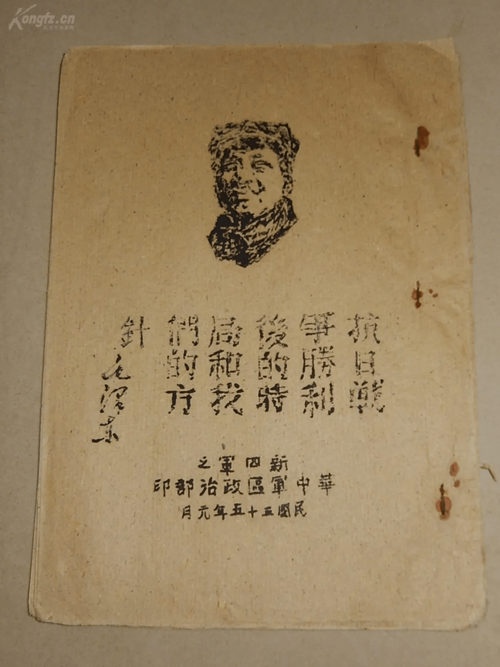 Kongfz.cn
抗日戰
爭勝利
後的時
局和我
們的方
針
毛澤東
新四軍之
華中軍區政治部印
民國三十五年元月